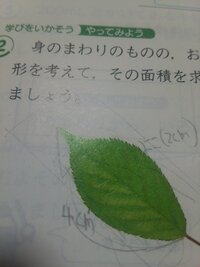 学びをいかそう やってみよう
2 身のまわりのものの、お
形を考えて、その面積を求
ましょう。
4cm